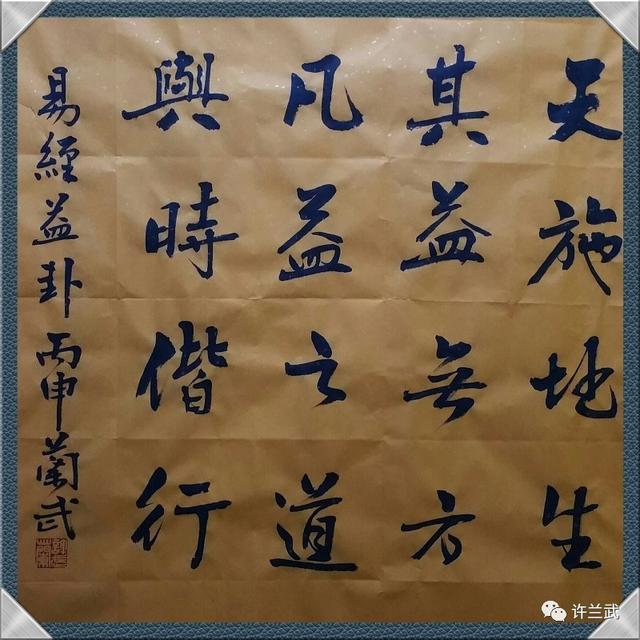 天施地生
其益無方
凡益之道
與時偕行
易經益卦丙申蘭武
许兰武